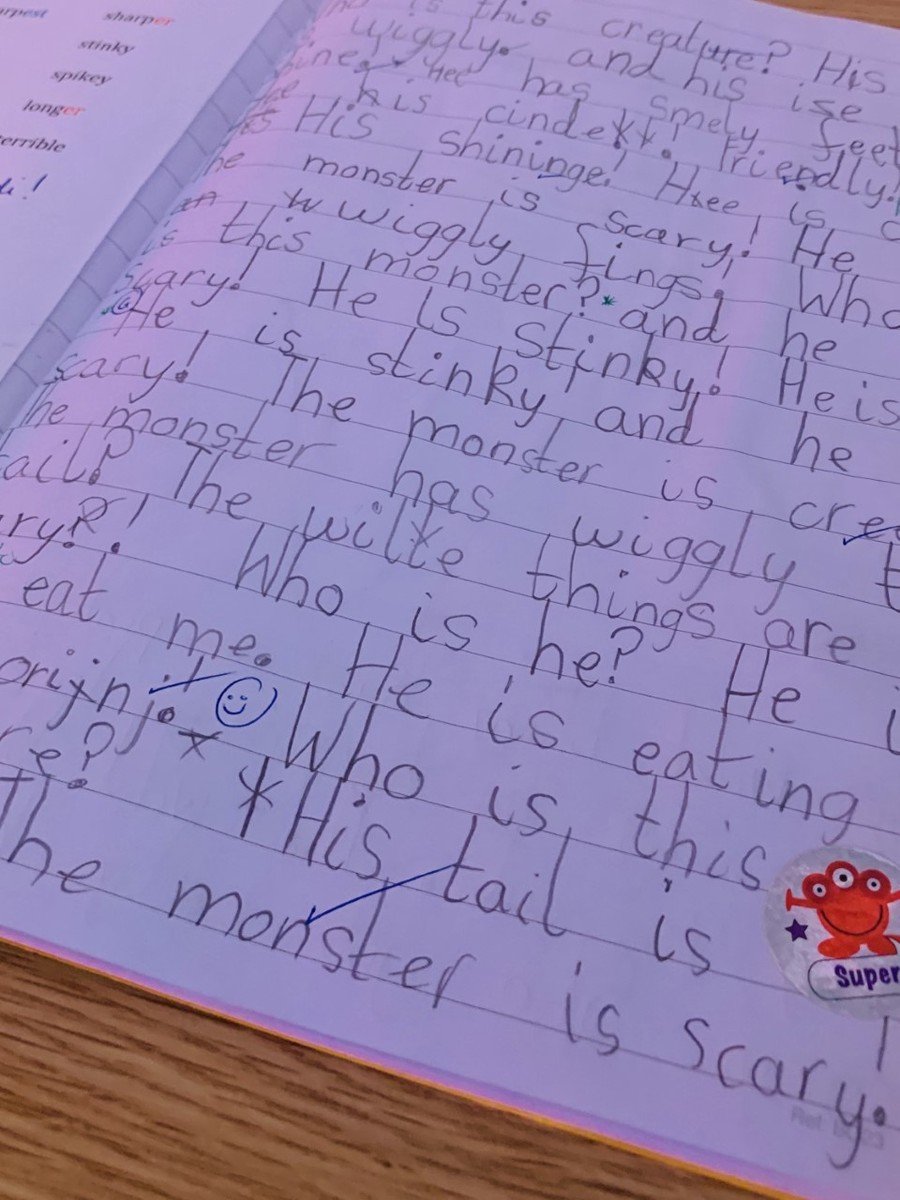 sharper
stinky
spikey
longer
is this creature? His
wiggly. and his ise
has smely feet
his cindeyy! friendly!
His shininge! Hee is
monster is scary! He
wwiggly fings. Who
this monster? and he
scary! He is stinky! He is
He is stinky and he
scary! The monster is
The monster has wiggly
tail? The wilte things are
Who is he? He
eat me. He is eating
Who is this
His tail is
The monster is scary.
Super